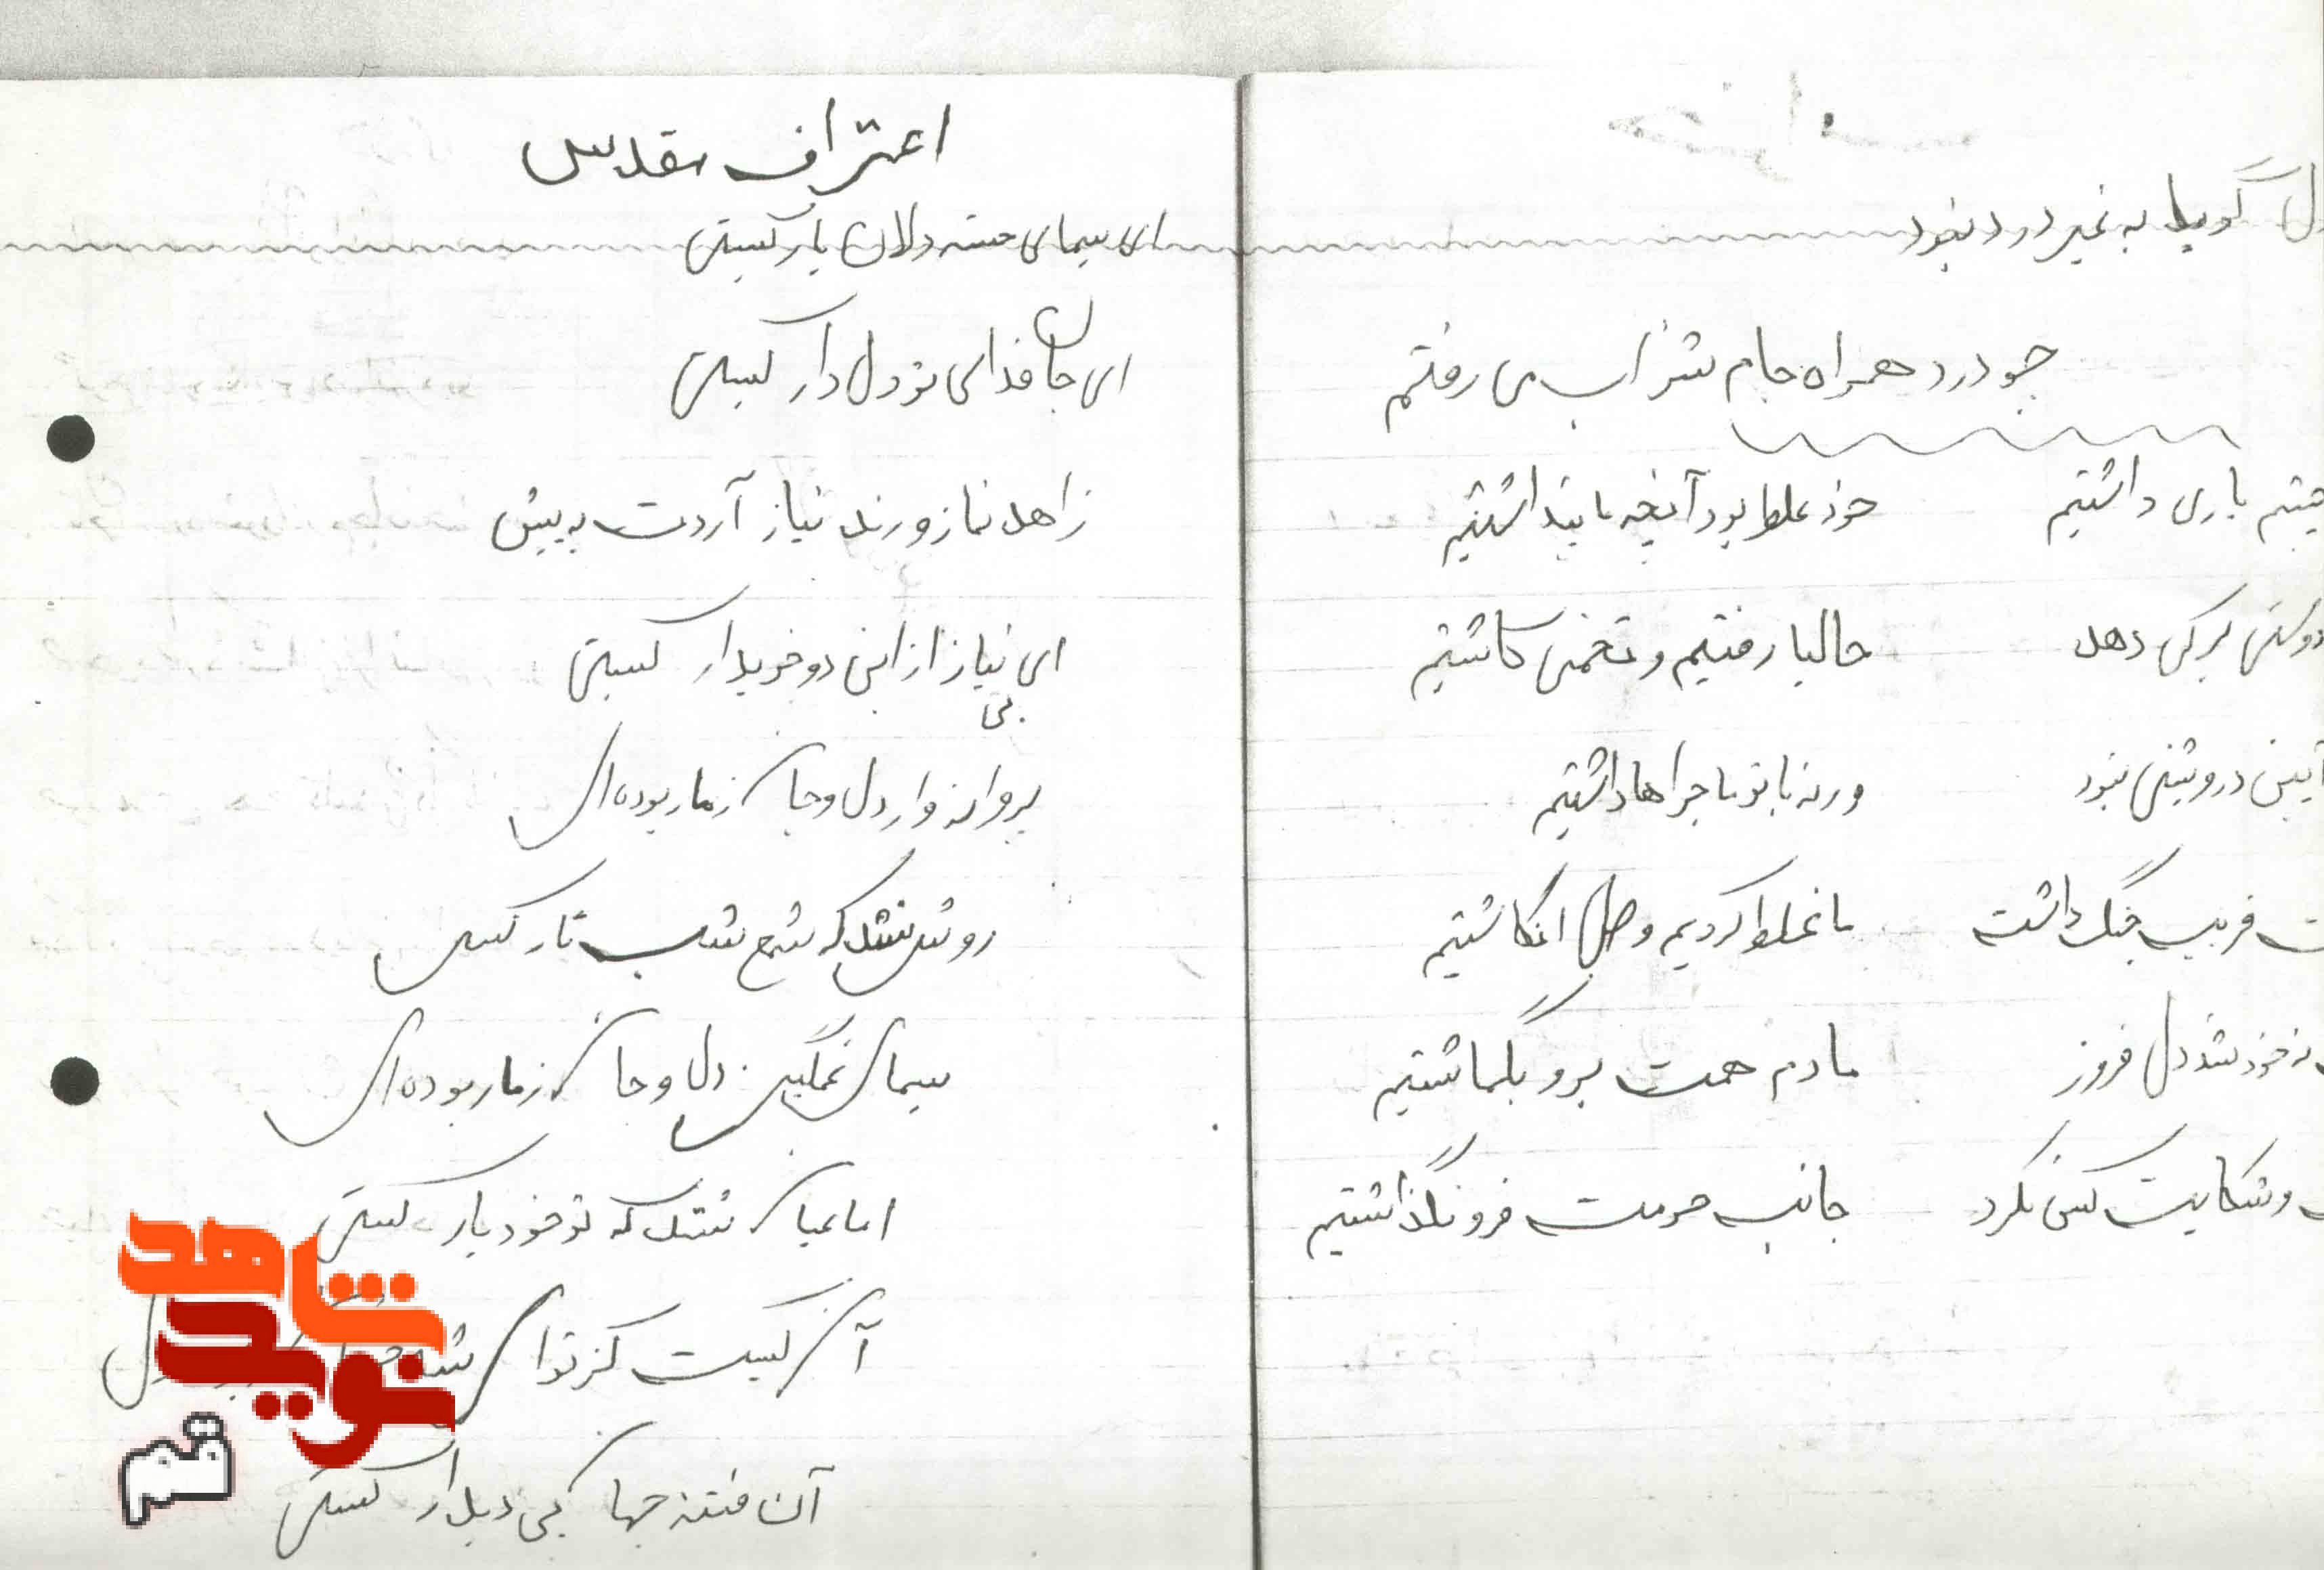 دل گویا به غیر درد نبود
چو درد همراه جام شراب می رفتم
چشم یاری داشتیم خود غلط بود آنچه ما پنداشتیم
دوستی بر کی دهد حالیا رفتیم و تخمی کاشتیم
آیین درویشی نبود ورنه با تو ماجراها داشتیم
فریب جنگ داشت ما غلط کردیم و صلح انگاشتیم
نه خود شد دل فروز ما دم همت برو بگماشتیم
و شکایت کس نکرد جانب حرمت فرو نگذاشتیم
اعتراف مقدس
ای سیمای خسته دلان یار کیستی
ای جان فدای تو دل دار کیستی
زاهد نماز و رند نیاز آردت به پیش
ای نیاز از این دو خریدار کیستی
بی
پروانه وار دل و جان ز ما ربوده ای
روشن نشد که شمع شب تار کیستی
سیمای غمگین دل و جان ز ما ربوده ای
اما عیان نشد که تو خود یار کیستی
آن کیست کز تو
آن فتنه جهان کی دیدار کیستی
شاهد
نوید
قم